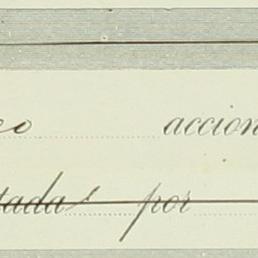 eo accion
tada por